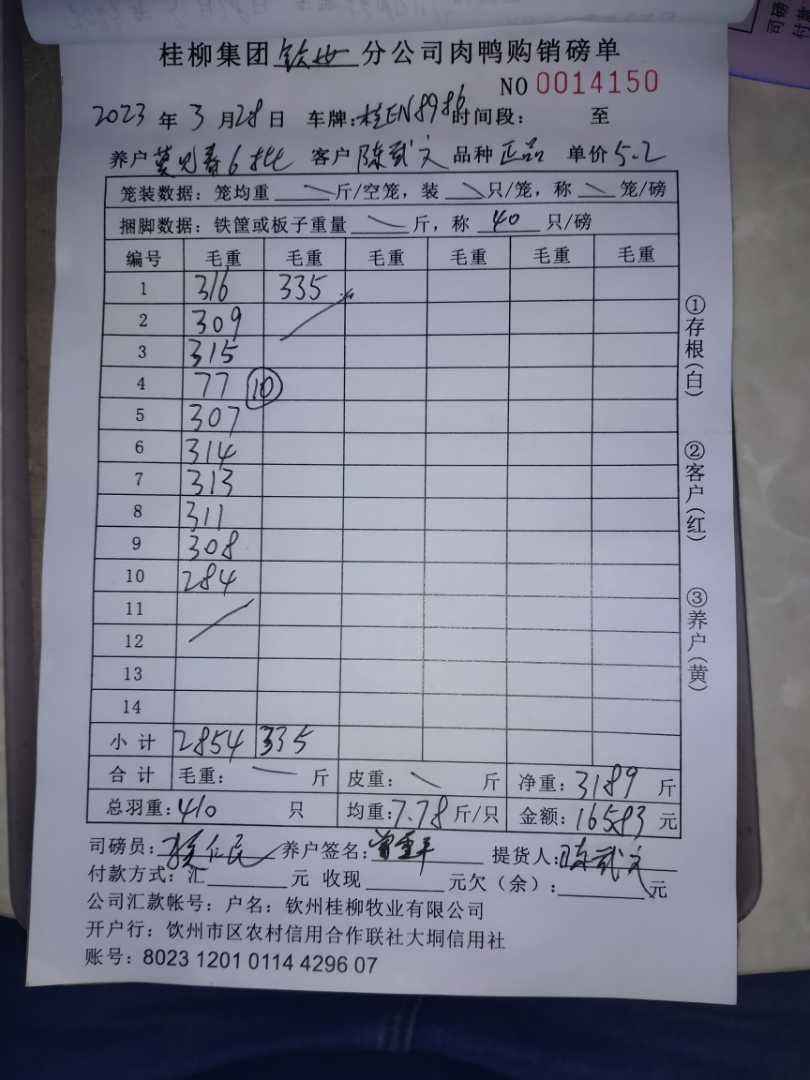 桂柳集团 分公司肉鸭购销磅单
NO 0014150
2023 年 3 月 28 日 车牌:桂EN8986 时间段: 至
养户 6批 客户 陈武文 品种 正品 单价 5.2
笼装数据: 笼均重 斤/空笼, 装 只/笼, 称 笼/磅
捆脚数据: 铁筐或板子重量 斤, 称 40 只/磅
编号 毛重 毛重 毛重 毛重 毛重 毛重
1 316 335
2 309
3 315
4 77 ⑩
5 307
6 314
7 313
8 311
9 308
10 284
11
12
13
14
小计 2854 335
合计 毛重: 斤 皮重: 斤 净重: 3189 斤
总羽重: 410 只 均重: 7.78 斤/只 金额: 16583 元
司磅员: 养户签名: 提货人: 陈武文
付款方式: 汇 元 收现 元欠(余): 元
公司汇款帐号: 户名: 钦州桂柳牧业有限公司
开户行: 钦州市区农村信用合作联社大垌信用社
账号: 8023 1201 0114 4296 07
①存根(白)
②客户(红)
③养户(黄)
司磅
付款